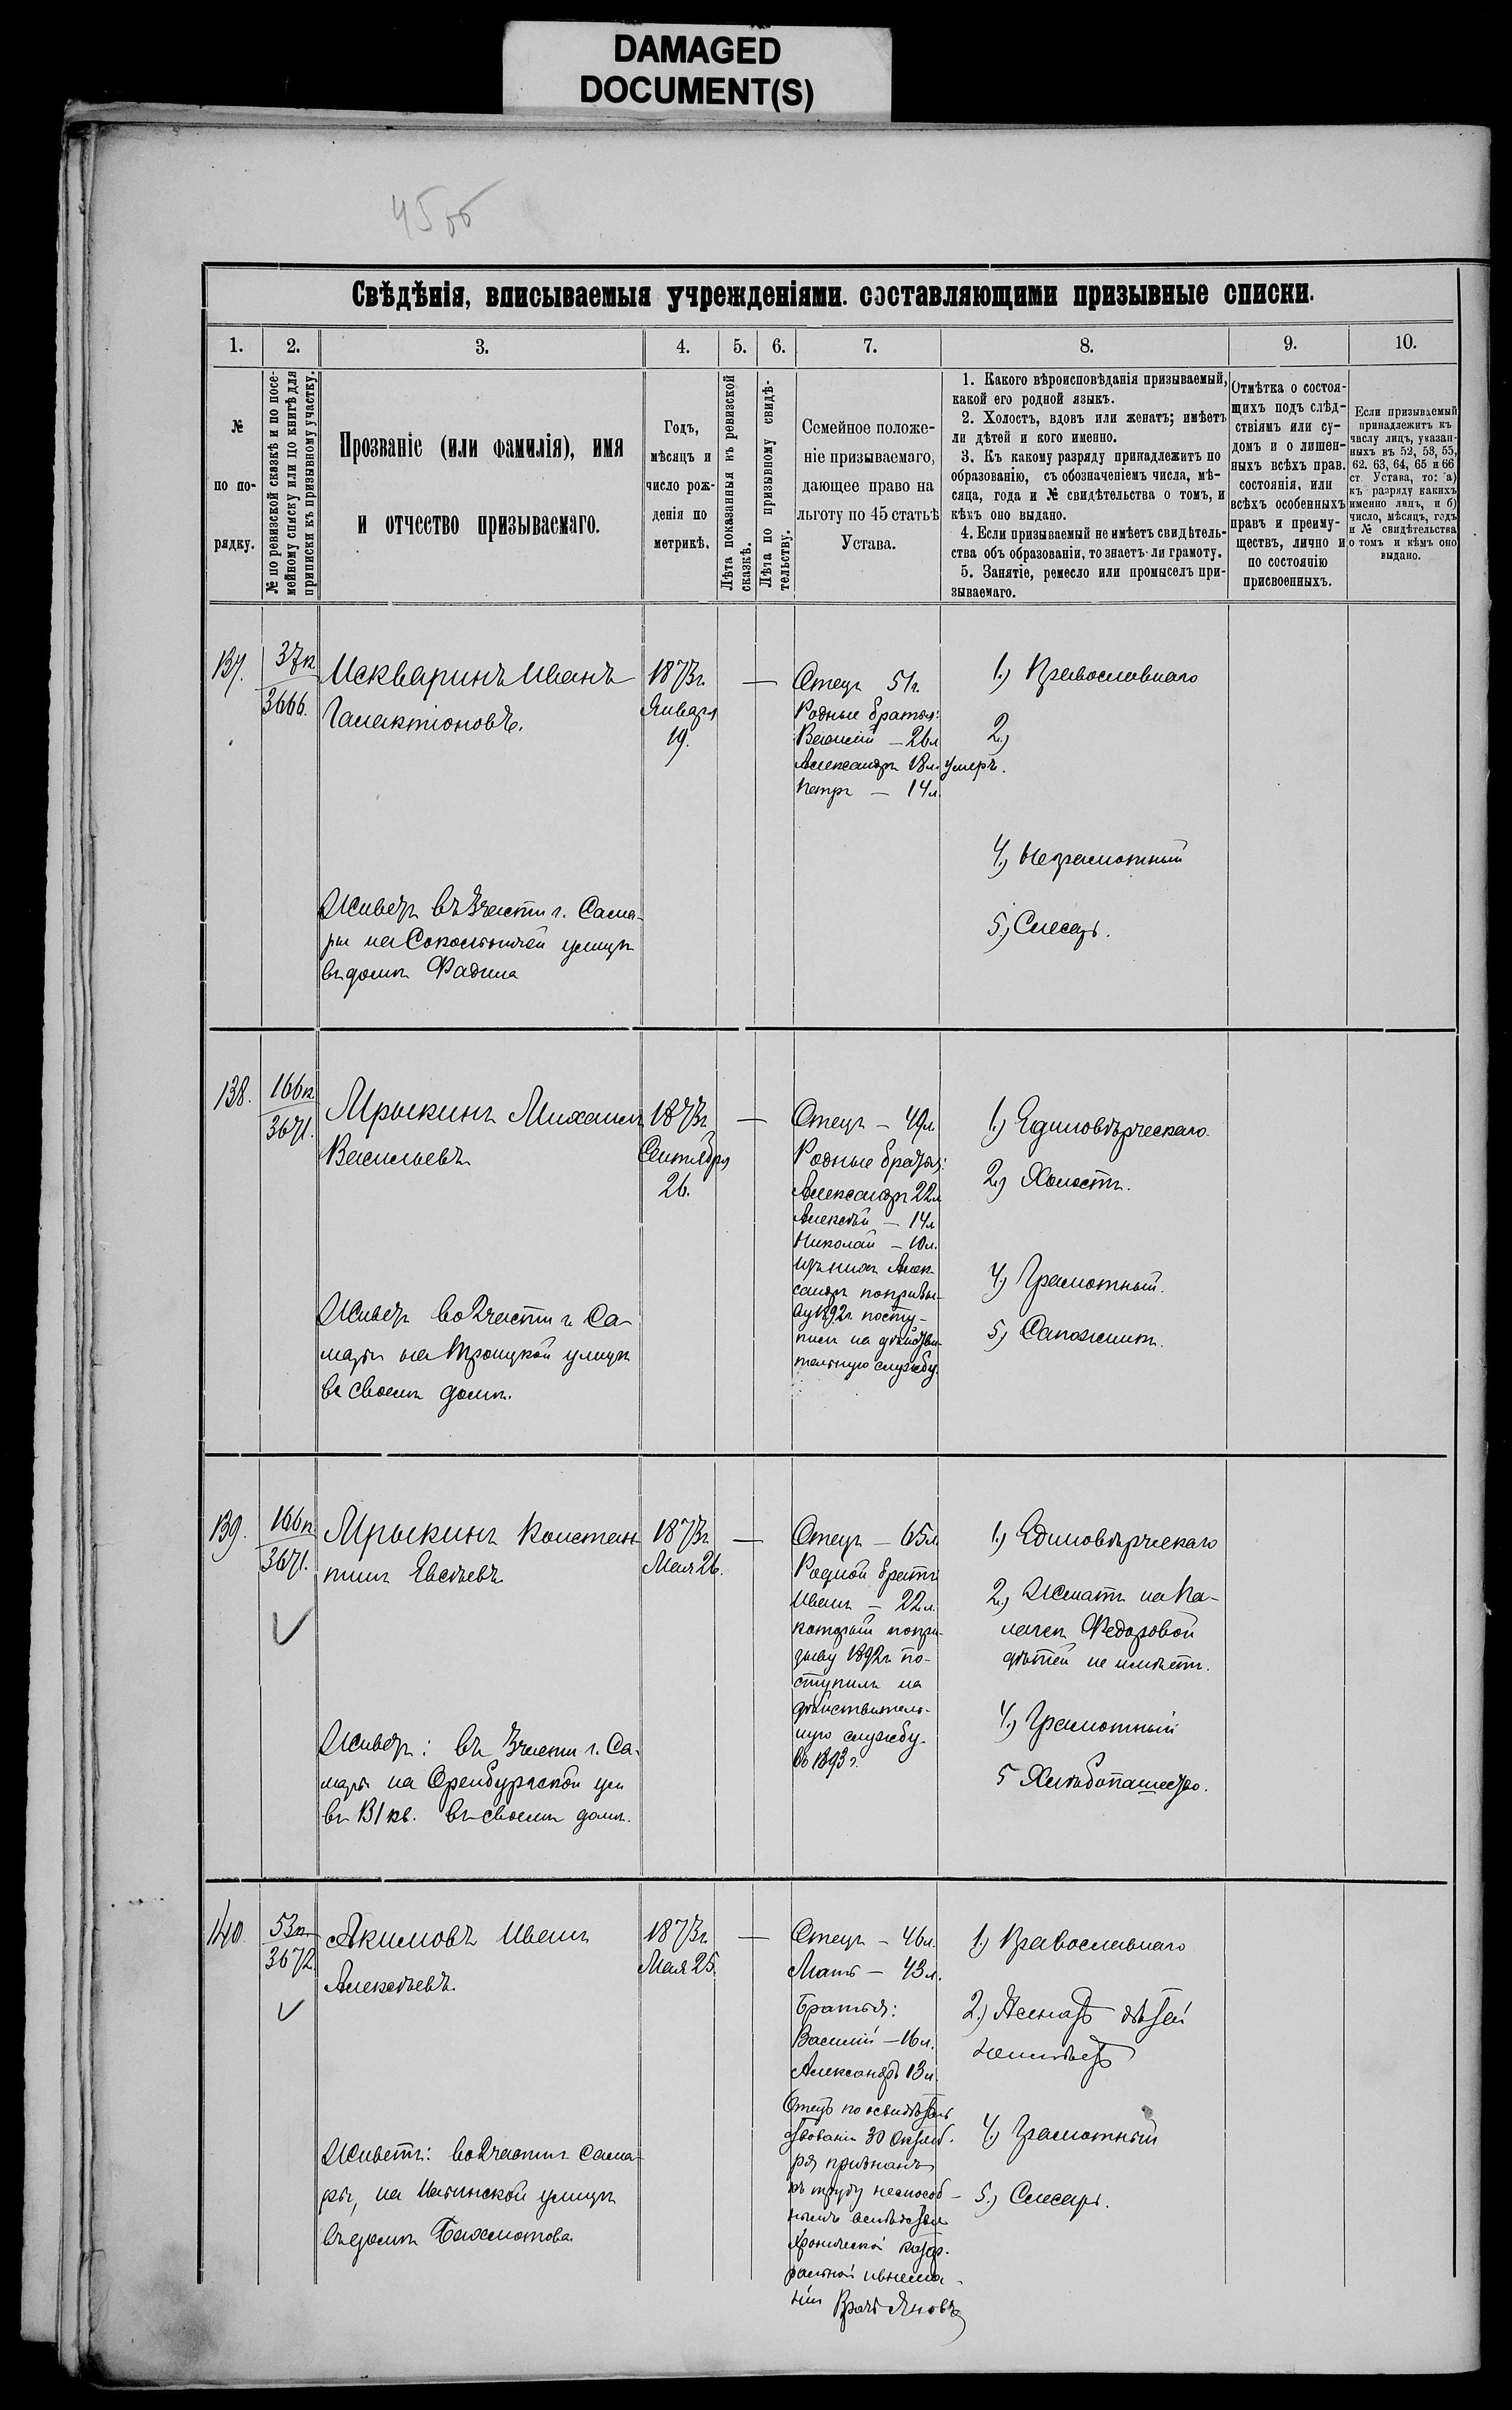 DAMAGED
DOCUMENT(S)
45об
Свѣдѣнія, вписываемыя учрежденіями. составляющими призывные списки.
1. 2. 3. 4. 5. 6. 7. 8. 9. 10.
№
по по-
рядку.
№ по ревизской сказкѣ и по посе-
мейному списку или по книгѣ для
приписки къ призывному участку.
Прозваніе (или фамилія), имя
и отчество призываемаго.
Годъ,
мѣсяцъ и
число рож-
денія по
метрикѣ.
Лѣта показанныя въ ревизской
сказкѣ.
Лѣта по призывному свидѣ-
тельству.
Семейное положе-
ніе призываемаго,
дающее право на
льготу по 45 статьѣ
Устава.
1. Какого вѣроисповѣданія призываемый,
какой его родной языкъ.
2. Холостъ, вдовъ или женатъ; имѣетъ
ли дѣтей и кого именно.
3. Къ какому разряду принадлежитъ по
образованію, съ обозначеніемъ числа, мѣ-
сяца, года и № свидѣтельства о томъ, и
кѣхъ оно выдано.
4. Если призываемый не имѣетъ свидѣтель-
ства объ образованіи, то знаетъ-ли грамоту.
5. Занятіе, ремесло или промыселъ при-
зываемаго.
Отмѣтка о состоя-
щихъ подъ слѣд-
ствіямъ или су-
домъ и о лишен-
ныхъ всѣхъ прав.
состоянія, или
всѣхъ особенныхъ
правъ и преиму-
ществъ, лично и
по состоянію
присвоенныхъ.
Если призываемый
принадлежитъ къ
числу лицъ, указан-
ныхъ въ 52, 53, 55,
62. 63, 64, 65 и 66
ст. Устава, то: а)
къ разряду какихъ
именно лицъ, и б)
число, мѣсяцъ, годъ
и № свидѣтельства
о томъ и кѣмъ оно
выдано.
137.
37п
3666.
Искваринъ Иванъ
Галактіоновъ.
Живетъ въ 3 части г. Сама-
ры на Сокольничей улицѣ
въ домѣ Фадина
1873г.
Января
19.
—
Отецъ 51г.
Родные братья:
Василій — 26л
Александръ 18л. умеръ.
Петръ — 14л.
1.) Православнаго
2.)
4.) Неграмотный
5.) Слесарь.
138.
166п
3671.
Мрыкинъ Михаилъ
Васильевъ
Живетъ во 2 части г. Са-
мары на Троицкой улицѣ
въ своемъ домѣ.
1873г.
Сентября
26.
—
Отецъ — 49л.
Родные братья:
Александръ 22л
Алексѣй — 14л
Николай — 10л.
Изъ нихъ Алек-
сандръ по призы-
ву 1892г. посту-
пилъ на дѣйстви-
тельную службу.
1.) Единовѣрческаго.
2.) Холостъ.
4.) Грамотный.
5.) Сапожникъ.
139.
166п
3671.
Мрыкинъ Констан-
тинъ Евсѣевъ
Живетъ: въ 3 части г. Са-
мары на Оренбургской ул
въ 131 кв. въ своемъ домѣ.
1873г.
Мая 26.
—
Отецъ — 65л
Родной братъ
Иванъ — 22л.
который по при-
зыву 1892г. по-
ступилъ на
дѣйствитель-
ную службу.
въ 1893 г.
1.) Единовѣрческаго
2.) Женатъ на Па-
лагеѣ Федоровой
дѣтей не имѣетъ.
4.) Грамотный
5 Хлѣбопашество.
140.
53п
3672.
Акимовъ Иванъ
Алексѣевъ.
Живетъ: во 2 части г. Сама-
ры, на Ильинской улицѣ
въ домѣ Бахмотова
1873г.
Мая 25.
—
Отецъ — 46л.
Мать — 43л.
Братья:
Василій — 16л.
Александръ 13л.
Отецъ по освидѣтель
ствованіи 30 Октяб-
ря признанъ
къ труду неспособ-
нымъ вслѣдствіе
хронической
Врачъ Яновъ
1.) Православнаго
2.) Женатъ дѣтей
неимѣетъ
4.) Грамотный
5.) Слесарь.